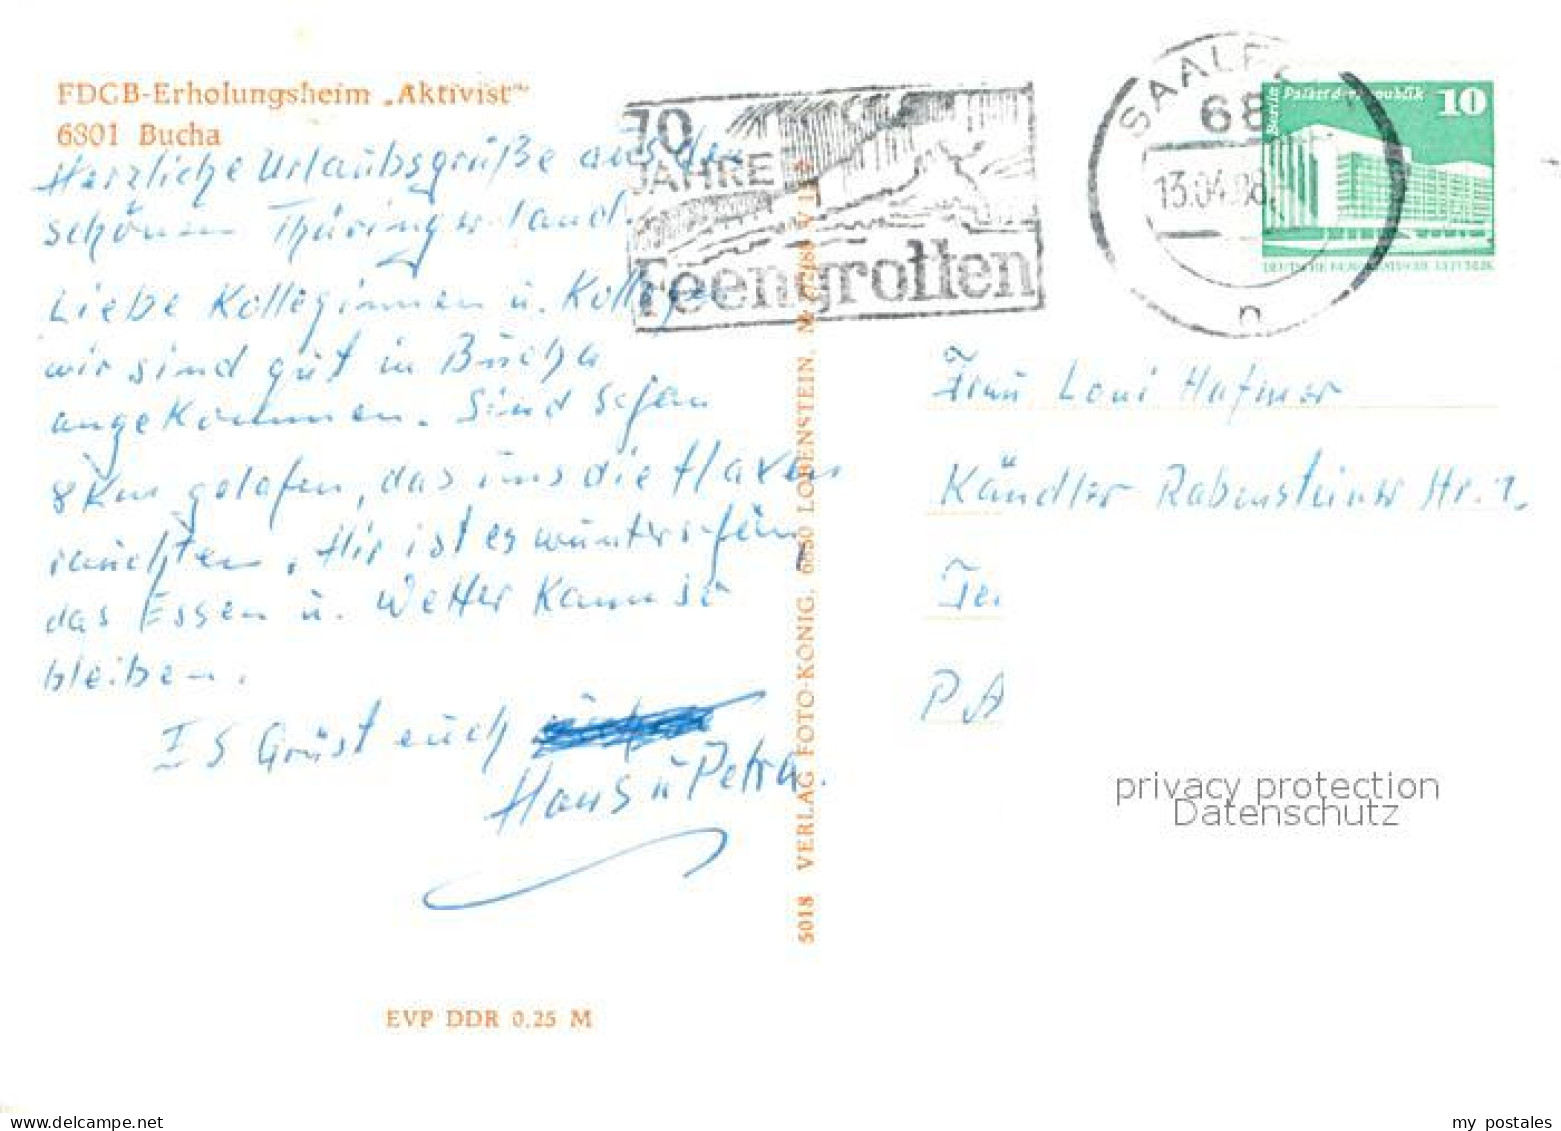 FDGB-Erholungsheim „Aktivist"
6801 Bucha
Herzliche Urlaubsgrüße aus den
schönen Thüringer land.
Liebe Kolleginnen u. Kollegen
wir sind gut in Bucha
angekommen. Sind schon
8 Km gelafen, das uns die Haxen
rauchten. Hir ist es wunterschön,
das Essen u. Wetter kann so
bleiben.
Es Grüst euch
Hans u Petra.
70
JAHRE
Feengrotten
SAALF
68
13.04.88
n
Berlin Palast d. Republik 10
DEUTSCHE DEMOKRATISCHE REPUBLIK
Frau Loni Hafner
Kändler Rabensteiner Str. 1.
PA
5018 VERLAG FOTO-KÖNIG, 6850 LOBENSTEIN,
EVP DDR 0,25 M
privacy protection
Datenschutz
delcampe.net
my_postales